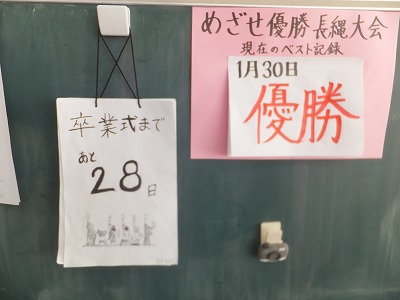 卒業式まで
あと
28日
めざせ優勝長縄大会
現在のベスト記録
1月30日
優勝